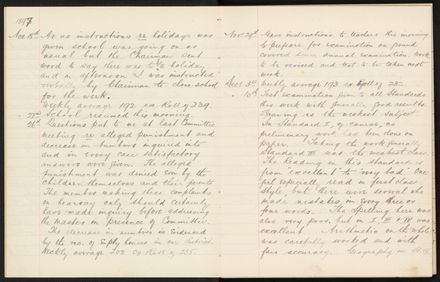 1897
Nov. 15th As no instructions re holidays was
given school was going on as
usual but the Chairman sent
word to say there was to be holiday
and in afternoon I was instructed
verbally by Chairman to close school
for the week.
Weekly average 192 on Roll of 229.
22nd School resumed this morning.
26th Questions put to me at last Committee
meeting re alleged punishment and
decrease in numbers inquired into
and in every case satisfactory
answers were given. The alleged
punishment was denied even by the
children themselves and their parents
The member asking these questions
on hearsay only should certainly
have made inquiry before addressing
the master in presence of Committee.
The decrease in numbers is evidenced
by the no. of empty houses in our district.
Weekly average 202 on Roll of 235.
Nov. 29th Gave instructions to teachers this morning
to prepare for examination on ground
covered since annual examination. Work
to be revised and test to be taken next
week.
Dec. 3rd Weekly average 193 on Roll of
10th Test examination given to all Standards
this week with generally good results.
Drawing is the weakest subject
in Standard I, of course, no
preliminary work had been done on
paper. Taking the work generally,
Standard III was the weakest class.
The reading in this standard is
from "excellent" to "very bad". One
girl especially read in first class
style, but there were several who
made mistakes in every three or
four words. The spelling here was
also very poor, but in I, II &
excellent. Arithmetic on the whole
was carefully worked and with
fair accuracy. Geography in